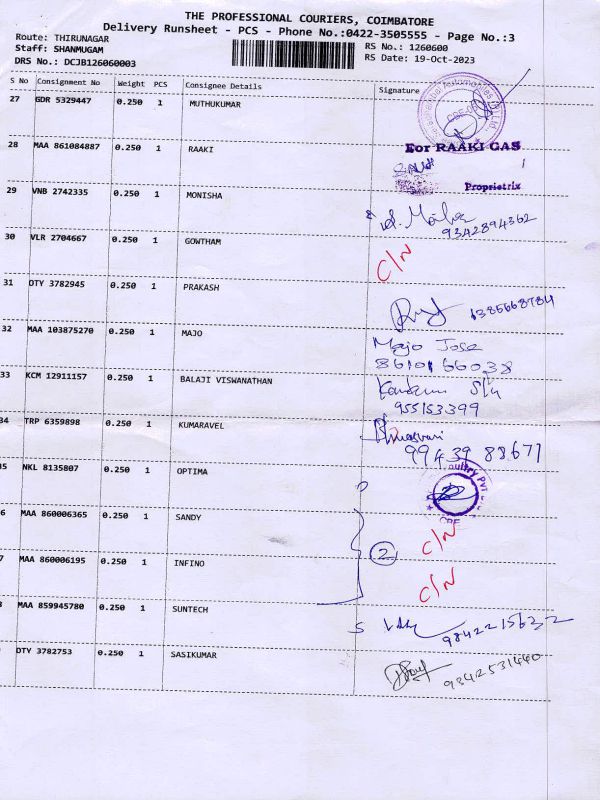 THE PROFESSIONAL COURIERS, COIMBATORE
Delivery Runsheet - PCS - Phone No.:0422-3505555 - Page No.:3
Route: THIRUNAGAR
Staff: SHANMUGAM
DRS No.: DCJB126060003
RS No.: 1260600
RS Date: 19-Oct-2023
S No Consignment No Weight PCS Consignee Details Signature
27 GDR 5329447 0.250 1 MUTHUKUMAR
28 MAA 861084887 0.250 1 RAAKI
For RAAKI GAS
Proprietrix
29 VNB 2742335 0.250 1 MONISHA
9342894362
30 VLR 2704667 0.250 1 GOWTHAM C/N
31 OTY 3782945 0.250 1 PRAKASH 6385668784
32 MAA 103875270 0.250 1 MAJO Majo Jose
8610166038
33 KCM 12911157 0.250 1 BALAJI VISWANATHAN
955153399
34 TRP 6359898 0.250 1 KUMARAVEL
99439 88671
5 NKL 8135807 0.250 1 OPTIMA
CBE
6 MAA 860006365 0.250 1 SANDY C/N
2
7 MAA 860006195 0.250 1 INFINO C/N
MAA 859945780 0.250 1 SUNTECH 9842215632
OTY 3782753 0.250 1 SASIKUMAR 9842531440